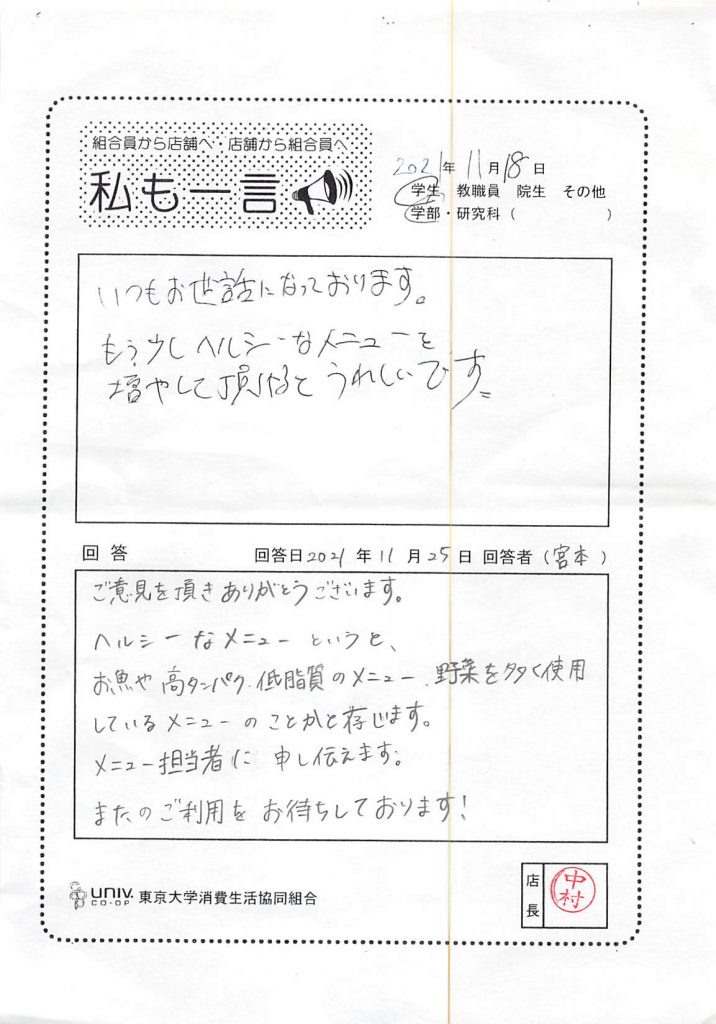 組合員から店舗へ・店舗から組合員へ
私も一言
2021年11月18日
学生 教職員 院生 その他
学部・研究科（ ）
いつもお世話になっております。
もう少しヘルシーなメニューを
増やして頂けるとうれしいです。
回答 回答日2021年11月25日 回答者（宮本）
ご意見を頂きありがとうございます。
ヘルシーなメニューというと、
お魚や高タンパク、低脂質のメニュー、野菜を多く使用
しているメニューのことかと存じます。
メニュー担当者に申し伝えます。
またのご利用をお待ちしております!
UNIV.
CO-OP
東京大学消費生活協同組合
店長
中村